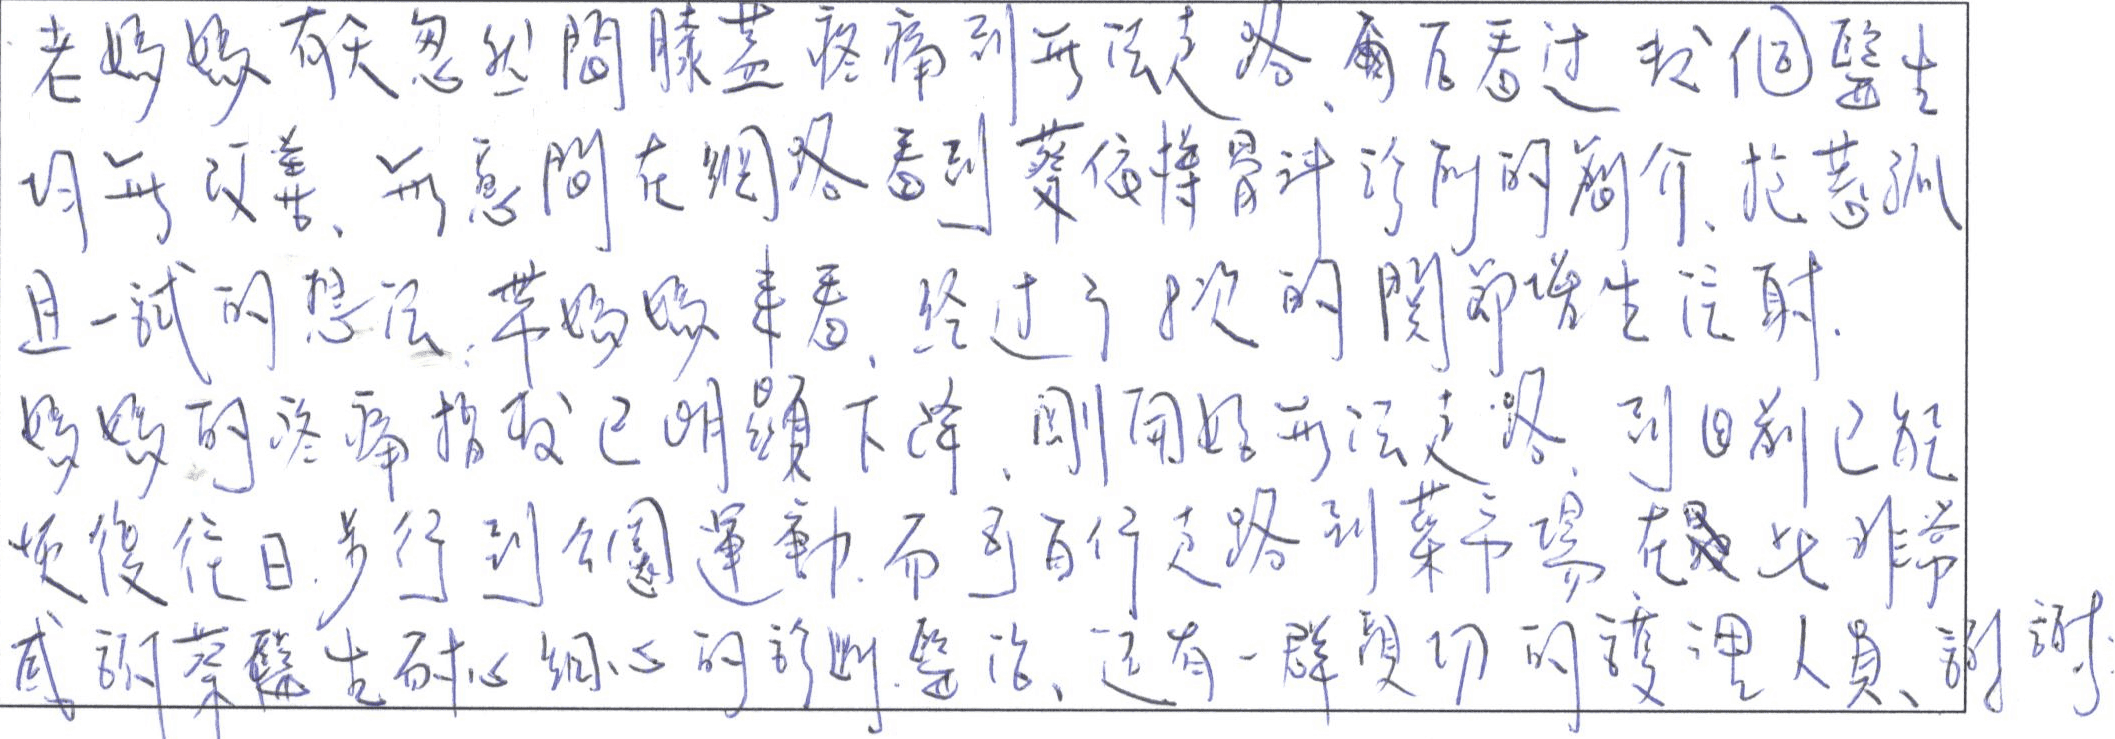 老媽媽有天忽然間膝蓋疼痛到無法走路、前后看过数個醫生
均無改善、無意間在網路看到蔡依樺骨科診所的簡介、抱著孤
且一試的想法、帶媽媽來看、經过了2次的関節增生注射.
媽媽的疼痛指数已明顯下降、剛開始無法走路、到目前已能
恢復往日.步行到公園運動.而可自行走路到菜市場在此非常
感謝蔡醫生耐心細心的診斷.醫治、还有一群親切的護理人員、謝謝.